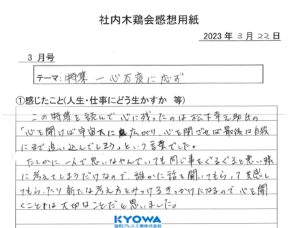 社内木鶏会感想用紙
2023年 3月 22日
3月号
テーマ: 特集 一心万変に応ず
①感じたこと(人生・仕事にどう生かすか 等)
この特集を読んで心に残ったのは松下幸之助氏の
「心を開けば宇宙大に広がり、心を閉ざせば最後は自殺
にまで追い込んでしまう」という言葉でした。
たしかに一人で思いなやんでいても同じ事をぐるぐると悪い様に
考えてしまうだけなので、誰かに話を聞いてもらって共感して
もらったり新たな考え方をみつけるきっかけになるので心を開
くことは大切なことだと思いました。
KYOWA